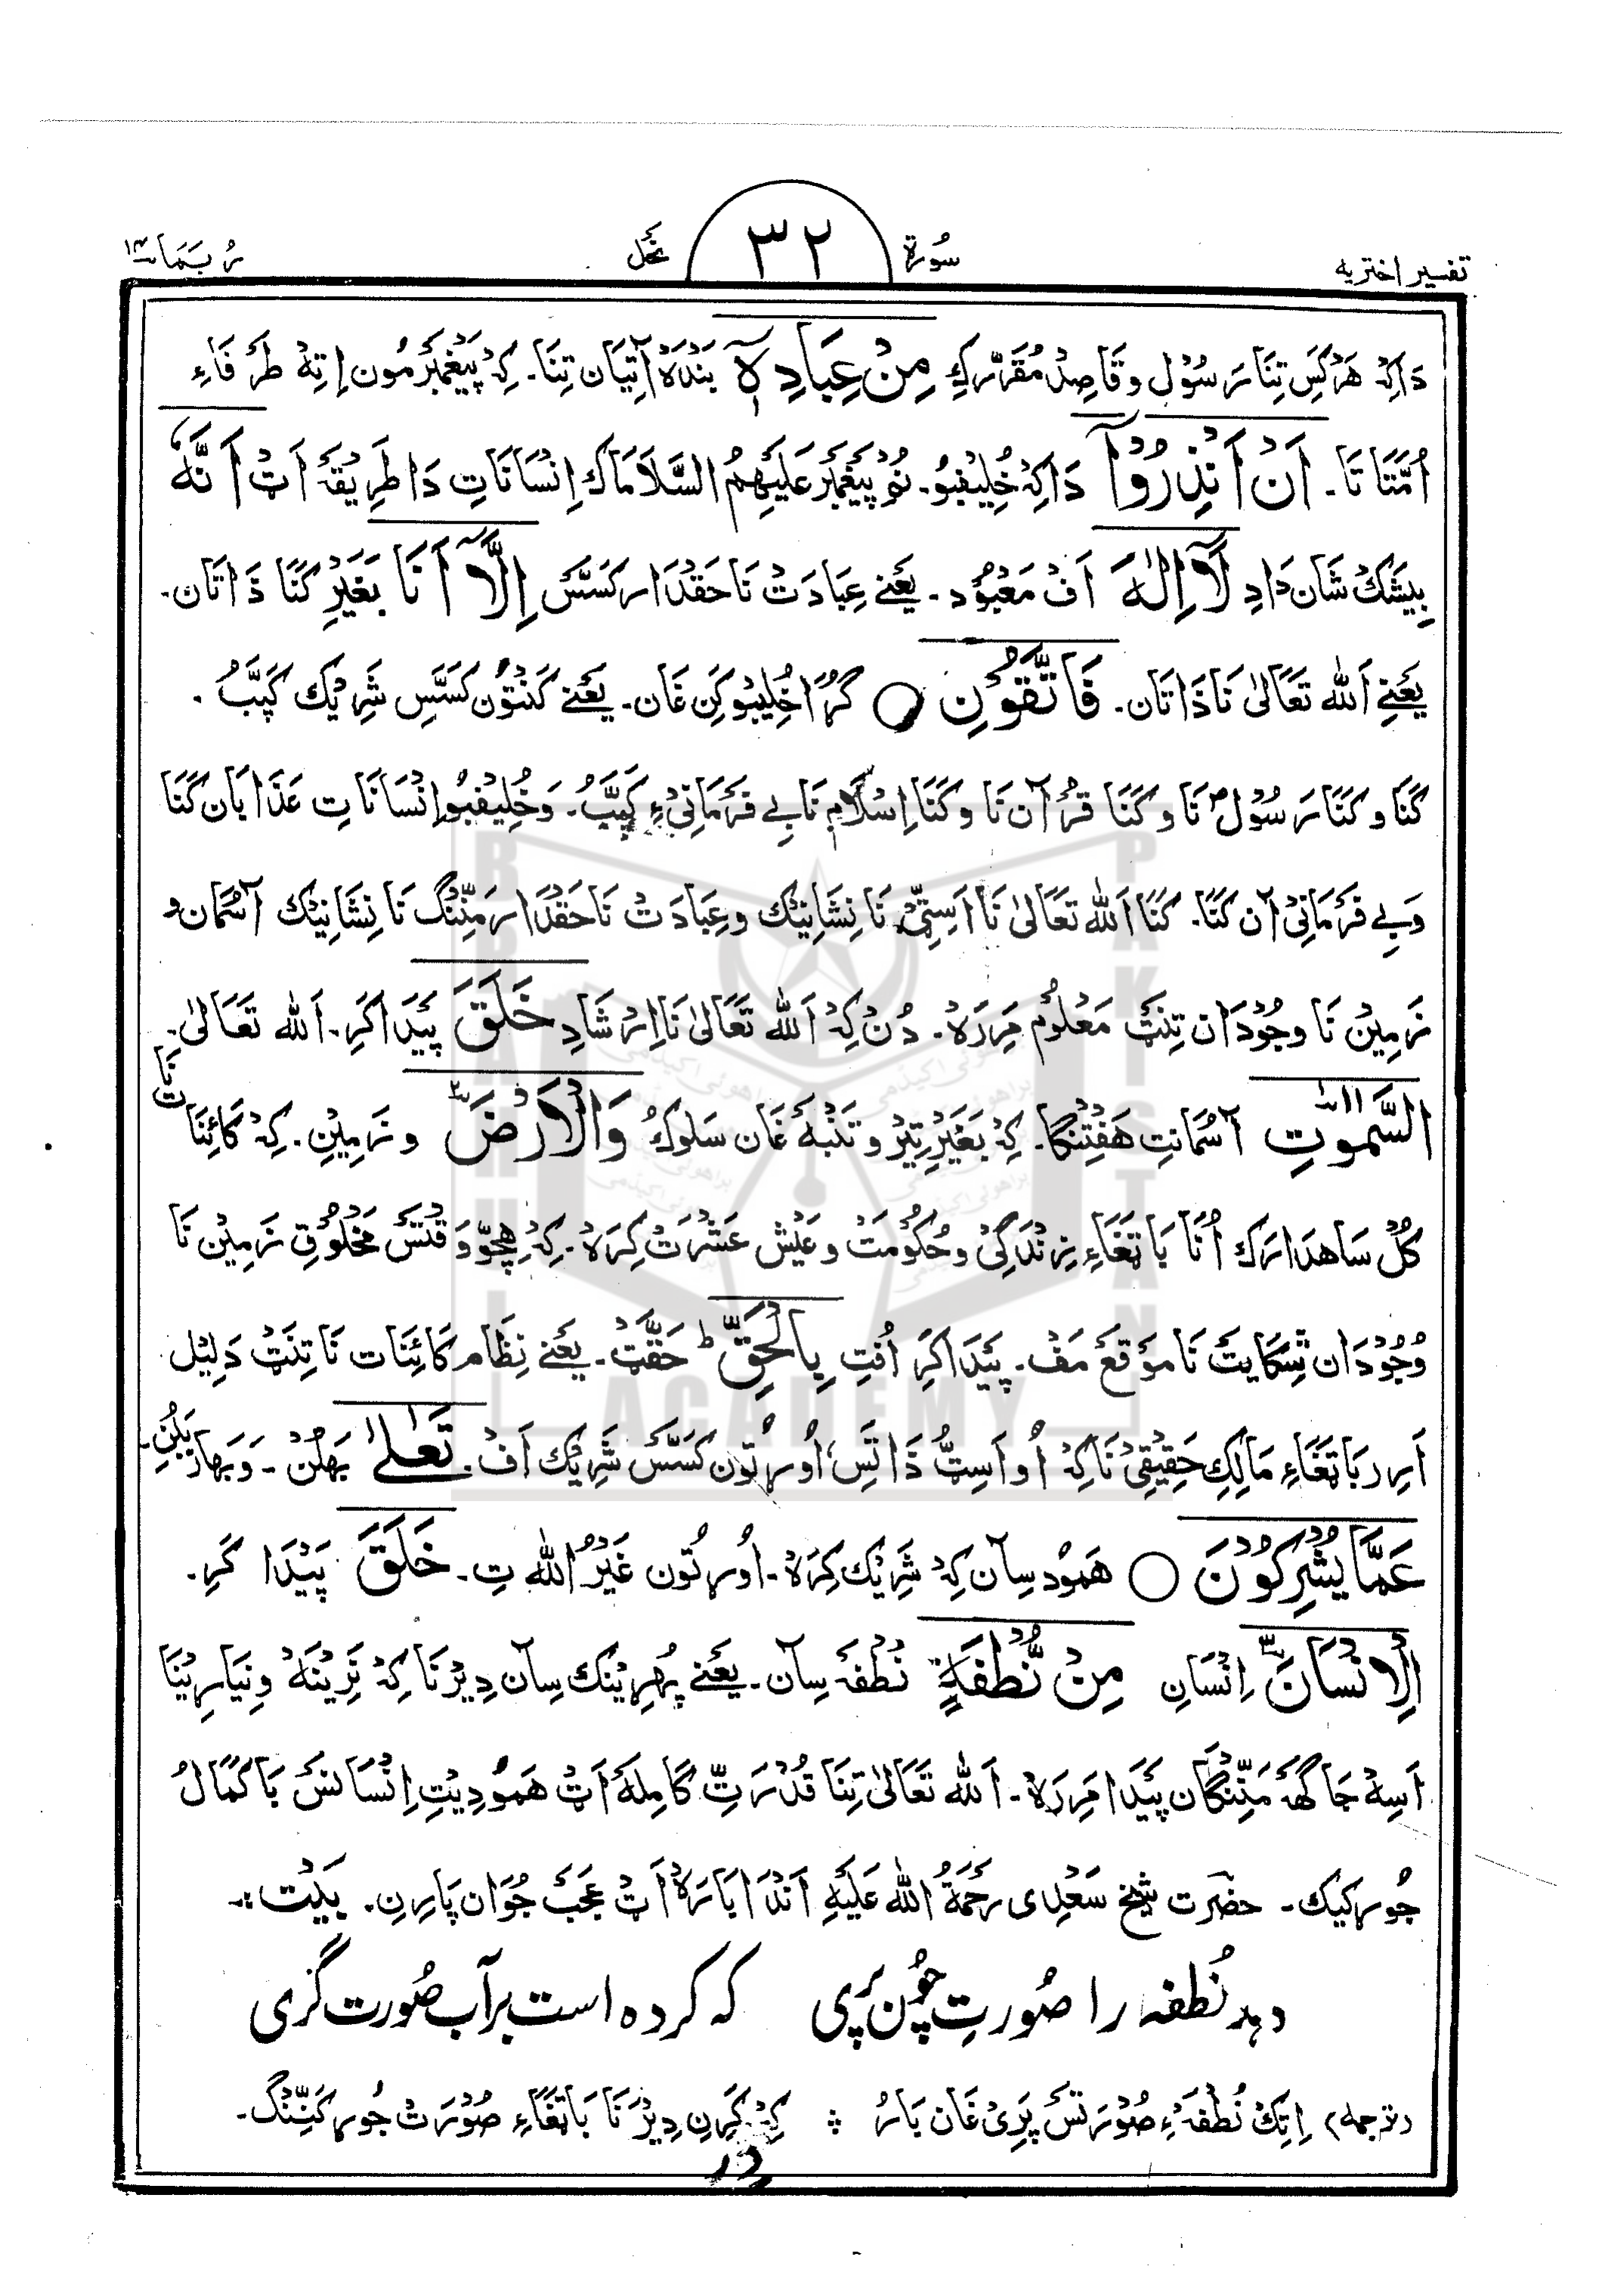 تفسیر اختریه
سُورة
٣٢
نَحل
رُبَمَا ١٤
دَاکِہْ هَرْکَسِ تِنَا رَسُوْل و قَاصِدْ مُقَرَّرکِ مِنْ عِبَادِهٖٓ بَنْدَہْ آتِیَان تِنَا۔ کِہْ پَیْغَمْبَرْ مُون اِتِهْ طَرَفَاءِ
اُمَّتَا تَا۔ اَنْ اَنْذِرُوْٓا دَاکِہْ خُلِیْفِبُو۔ نُمْ پَیْغَمْبَرْ عَلَیْهِمُ السَّلَامَاک اِنْسَانَاتِ دَا طَرِیْقَہْ اَٹْ اَنَّهٗ
بِیْشَکْ شَان دَادِ لَآ اِلٰهَ اَفْ مَعْبُوْد۔ یَعْنے عِبَادَتْ نَا حَقْدَار کَسَّسْ اِلَّآ اَنَا بَغَیْرِ کَنَا ذَاتَان۔
یَعْنِے اَللّٰه تَعَالیٰ نَا ذَاتَان۔ فَاتَّقُوْنِ ○ گُڑا خُلِیْبُو کَنِ غَان۔ یَعْنے کَنْتُوْن کَسَّسِ شَرِیْک کَپَّبُ۔
کَنَا و کَنَا رَسُوْل ؐ نَا و کَنَا قُرْآن نَا و کَنَا اِسْلَام نَا بے فَرْمَانِیْءِ کَپَّبُ۔ وَ خُلِیْفِبُو اِنْسَانَاتِ عَذَابَان کَنَا
وَ بے فَرْمَانِیْ آن کَنَا۔ کَنَا اَللّٰه تَعَالیٰ نَا اَسِتِّیْ نَا نِشَانِیْک و عِبَادَتْ نَا حَقْدَار مَنِّنْگ نَا نِشَانِیْک آسْمَان و
زَمِیْن نَا وجُوْدَان تِنَتْ مَعْلُوْم مَرِرَہْ۔ دُنْ کِہْ اَللّٰه تَعَالیٰ نَا اِرْشَادِ خَلَقَ پَیْدَا کَرِ۔ اَللّٰه تَعَالیٰ۔
السَّمٰوٰتِ آسْمَانتِ هَفْتِنْگا۔ کِہْ بَغَیْرِ تِیْر و تَنْبَہْ غَان سَلوکُ وَالْاَرْضَ و زَمِیْنِ۔ کِہْ کَائِنَاتْ نَا
کُلْ سَاهدَارَک اُنَا بَاتَغَاءِ زِنْدَگِیْ و حُکُوْمَتْ و عَیْش عَشْرَتْ کِرَہْ۔ کِہْ هِچّو وَقْتَسْ مَخْلُوْقِ زَمِیْن نَا
وُجُوْدَان شِکَایَتْ نَا موْقَعْ مَفْ۔ پَیْدَا کَرِ اُفْتِ بِالْحَقِّ ؕ حَقَّتْ۔ یَعْنے نِظَامِ کَائِنَات نَا تِنَتْ دَلِیْل
اَرِ رَبَا تَغَاءِ مَالِکِ حَقِیْقِیْ نَا کِہْ اُو اَسِٹُ ذَاتَسِ، اُورْتُون کَسَّسْ شَرِیْک اَفْ۔ تَعٰلٰی بَهَلُنْ۔ وَ بَهاز بَلُنِ۔
عَمَّا یُشْرِکُوْنَ ○ هَمُوْد سِآن کِہْ شَرِیْک کِرَہْ۔ اُورْتُون غَیْرُ اللّٰه تِ۔ خَلَقَ پَیْدَا کَرِ۔
الْاِنْسَانَ اِنْسَانِ مِنْ نُّطْفَةٍ نُطْفَہ سِآن۔ یَعْنے پُهرِیْنک سِآن دِیْرنَا کِہْ نَرِیْنَہْ و نِیَارِیْنَا
اَسِہْ جَاگَہْ مَنِّنْگَان پَیْدَا مَرِرَہْ۔ اَللّٰه تَعَالیٰ تِنَا قُدْرَتِ کَامِلَہْ اَٹْ هَمُوْ دِیْتِ اِنْسَانَسْ بَا کَمَالُ
جُوڑ کیک۔ حضرت شیخ سَعْدِی رَحْمَةُ اللّٰه عَلَیْهِ اَنْدَا بَارَہْ اَٹْ عَجَبْ جُوَان پَارِنِ۔ بَیْت :۔
دہد نُطفہ را صُورتِ چُون پَری کہ کردہ است بر آب صُورت گری
(ترجمہ) اِتِکْ نُطْفَہْءِ صُوْرَتَسْ پَرِیْ غَان بَارُ ؞ کِہْ کَرِنِ دِیْرْنَا بَاتَغَاءِ صُوْرَتْ جُوڑ کَنِّنْگ۔